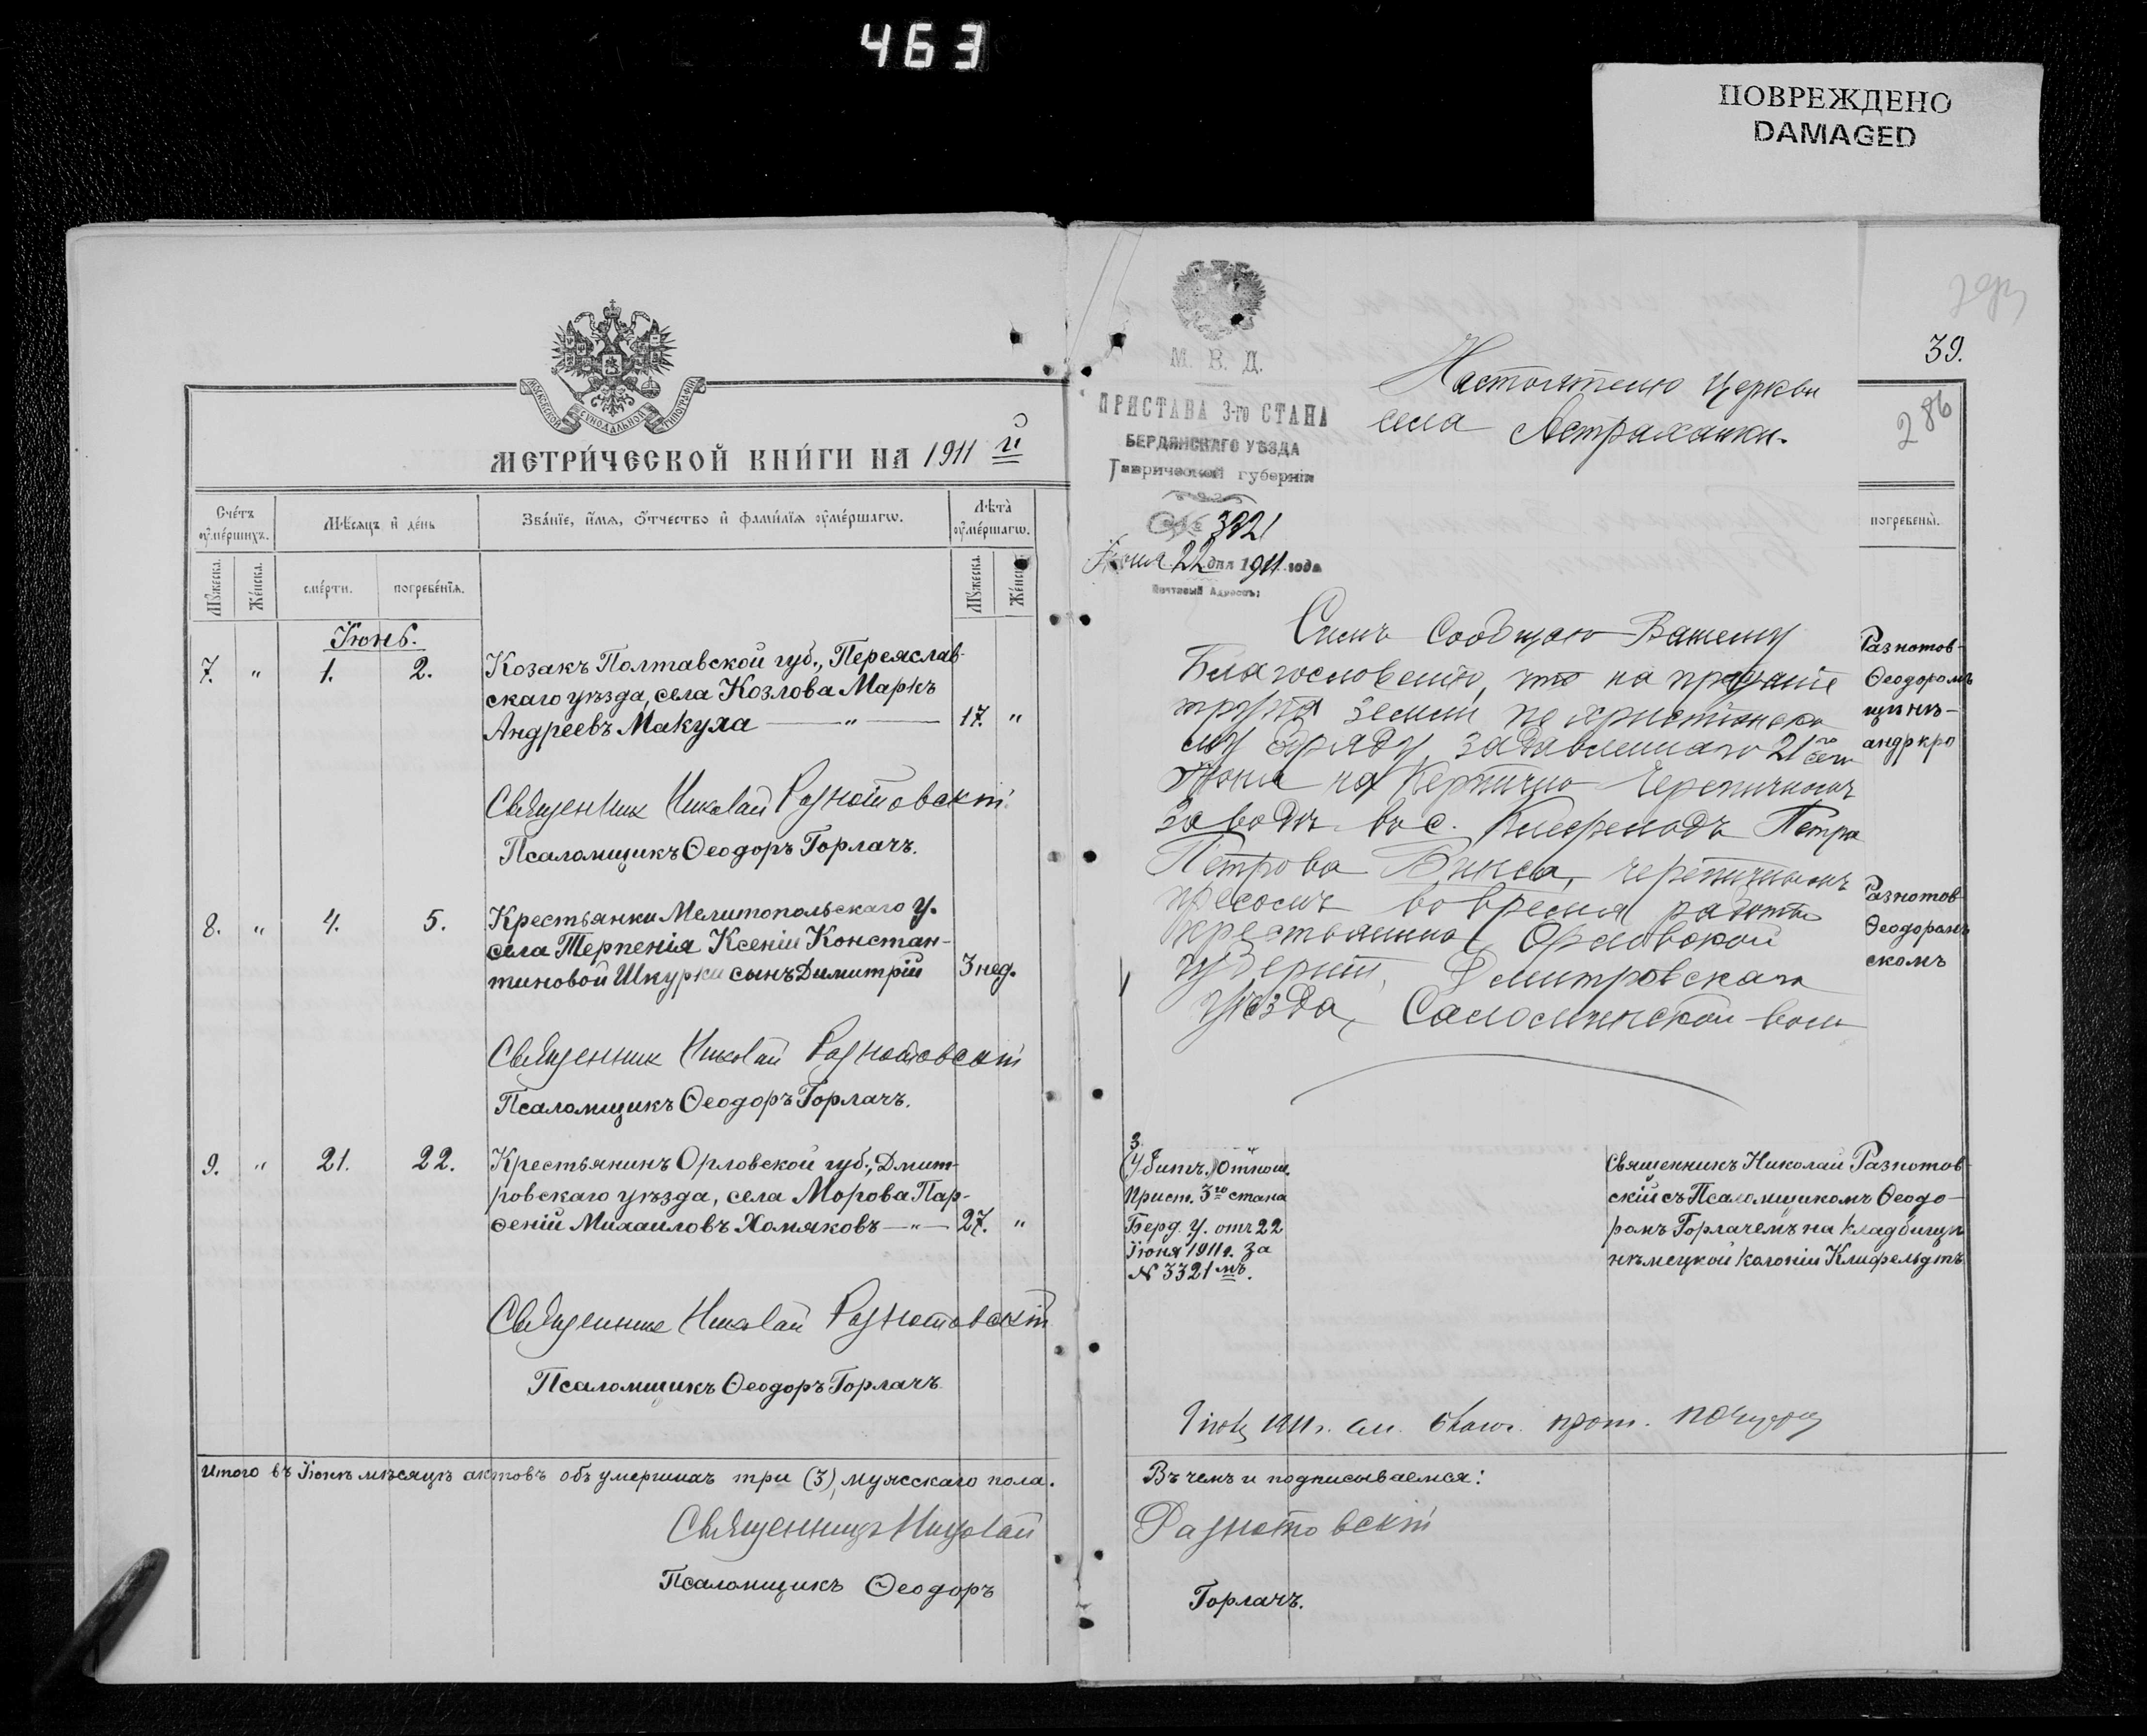 463
ПОВРЕЖДЕНО
DAMAGED
МОСКОВСКОЙ СУНОДАЛЬНОЙ ТИПОГРАФІИ
МЕТРИ́ЧЕСКОЙ КНИ́ГИ НА 1911 й
Сче́тъ ᲂу҆ме́ршихъ.
Мѣ́сяцъ и҆ де́нь
Зва́нїе, и҆́мѧ, ѻ҆́тчество и҆ фами́лїѧ ᲂу҆ме́ршагѡ.
Лѣ́та ᲂу҆ме́ршагѡ.
Мꙋ́жеска.
Же́нска.
сме́рти.
погребе́нїѧ.
Мꙋ́жеска.
Же́нска.
Іюнь.
7. " 1. 2. Козакъ Полтавской губ., Переяслав-
скаго уѣзда, села Козлова Маркъ
Андреевъ Макуха — " — 17. "
Священник Николай Разнотовскій
Псаломщикъ Ѳеодоръ Горлачъ.
8. " 4. 5. Крестьянки Мелитопольскаго у.
села Терпенія Ксеніи Констан-
тиновой Шкурки сынъ Димитрій 3 нед.
Священник Николай Разнотовскій
Псаломщикъ Ѳеодоръ Горлачъ.
9. " 21. 22. Крестьянинъ Орловской губ., Дмит-
ровскаго уѣзда, села Морова Пар-
ѳеній Михаиловъ Хомяковъ — " — 27. "
Священник Николай Разнотовскій
Псаломщикъ Ѳеодоръ Горлачъ
Итого въ Іюнѣ мѣсяцѣ актовъ объ умершихъ три (3), мужскаго пола.
Священникъ Николай
Псаломщикъ Ѳеодоръ
39.
286
М. В. Д.
ПРИСТАВА 3-го СТАНА
БЕРДЯНСКАГО УѢЗДА
Таврической губерніи
№ 3321
Іюня 22 дня 1911 года
Почтовый Адресъ:
Настоятелю Церкви
села Астраханки.
погребены̀.
Симъ Сообщаю Вашему
Благословенію, что на преданіе
трупа земли по христіанско
му обряду, задавленнаго 21го сего
Іюня на Кирпично Черепичномъ
заводѣ въ с. Клефельдъ Петра
Петрова Винса, черепичнымъ
прессомъ во время работы
крестьянина Орловской
губерніи, Дмитровскаго
уѣзда, Саломинской вол
Разнотов-
Ѳеодоромъ
щинѣ-
андркро
Разнотов
Ѳеодоромъ
скомъ
3.
Убитъ. Отнош.
Прист. 3го стана
Берд. у. отъ 22
Іюня 1911 г. за
№ 3321 мъ.
Священникъ Николай Разнотов-
скій съ Псаломщикомъ Ѳеодо-
ромъ Горлачемъ на кладбищѣ
нѣмецкой колоніи Клифельдтъ
1911 г.
Въ чемъ и подписываемся:
Разнотовскій
Горлачъ.